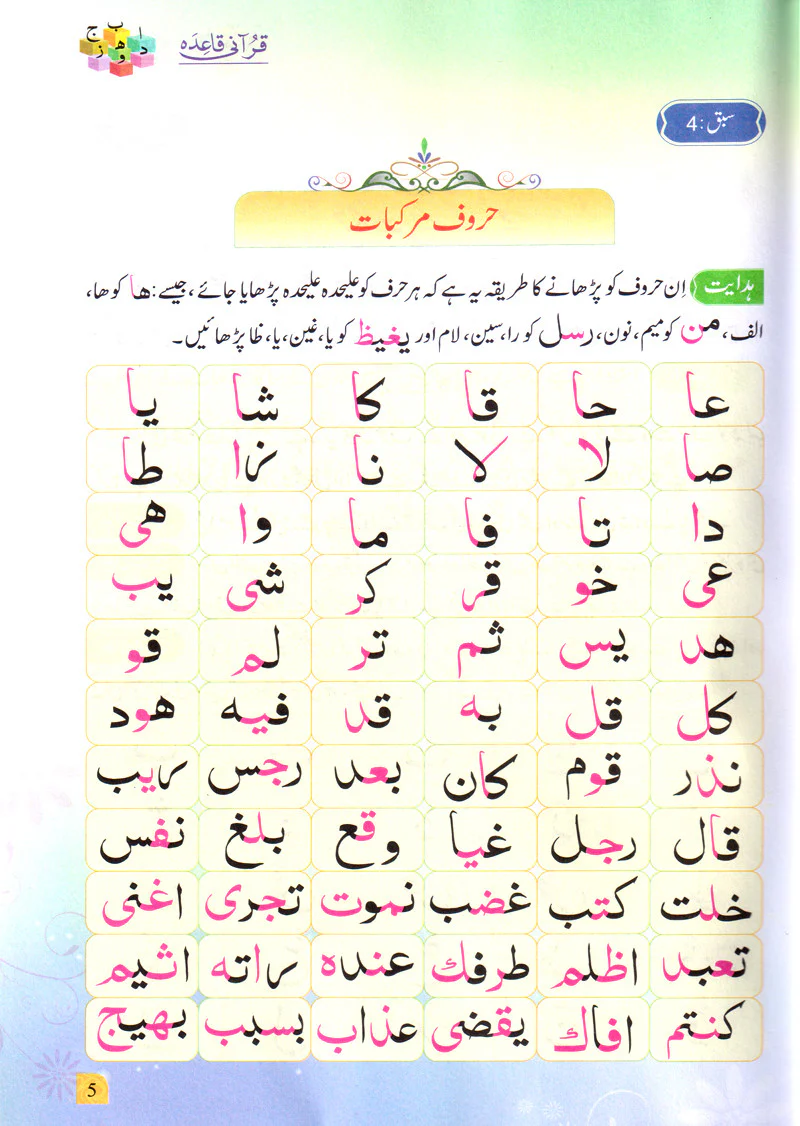 ا ب ج
د ه و ز
قُرآنی قاعِدَہ
سبق : 4
حروف مرکبات
ہدایت اِن حروف کو پڑھانے کا طریقہ یہ ہے کہ ہر حرف کو علیحدہ علیحدہ پڑھایا جائے، جیسے: ھا کو ھا،
الف، من کو میم، نون، رسل کو را، سین، لام اور یغیظ کو یا، غین، یا، ظا پڑھائیں۔
عا حا قا کا شا یا
صا لا لا نا نرا طا
دا تا فا ما وا هی
عی خو قر کر شی یب
هد یس ثم تر لم قو
کل قل به قد فیه هود
نذر قوم کان بعد رجس ریب
قال رجل غیا وقع بلغ نفس
خلت کتب غضب نموت تجری اغنی
تعبد اظلم طرفك عنده راته اثیم
کنتم افاك یقضی عذاب بسبب بهیج
5